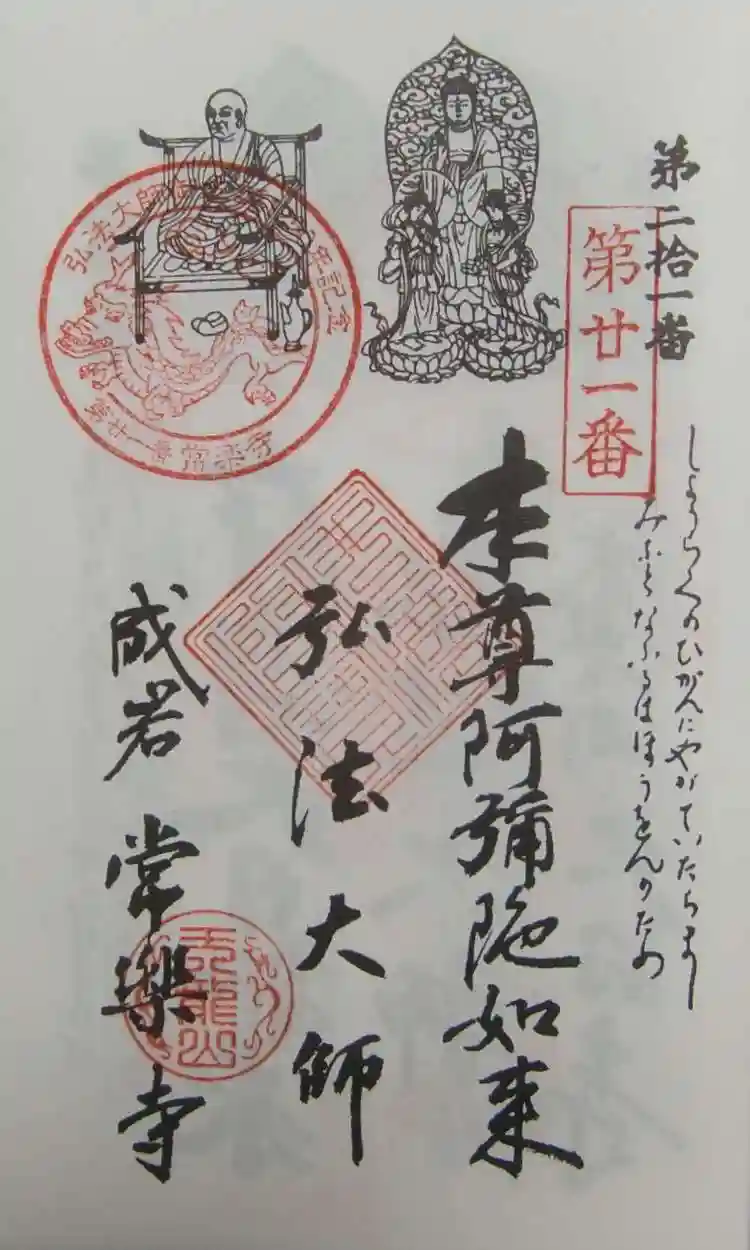 第二拾一番
第廿一番
しようらくのひがんにやがていたらまし
となふるはほうをんのため
本尊阿彌陀如来
弘法大師
成岩 常樂寺
弘法大師
記念
第廿一番 常楽寺
天龍山